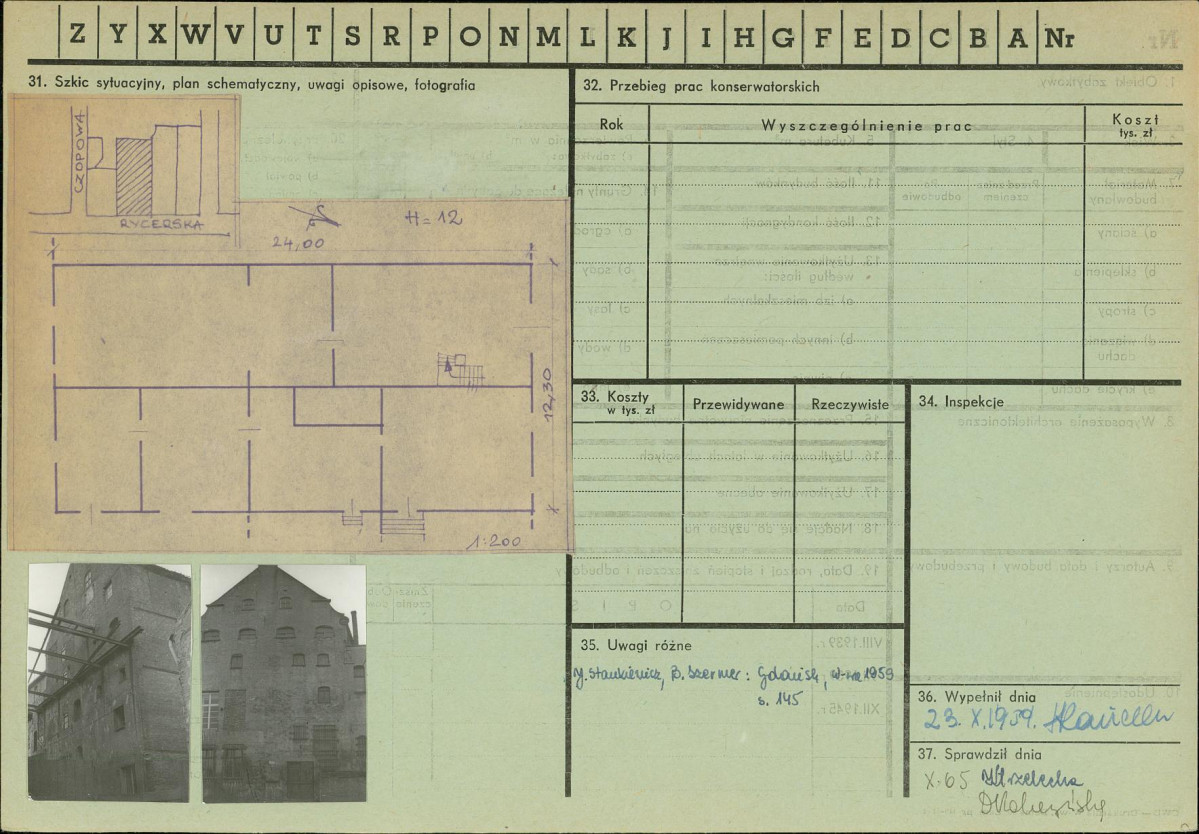 Z Y X W V U T S R P O N M L K J I H G F E D C B A Nr
31. Szkic sytuacyjny, plan schematyczny, uwagi opisowe, fotografia
CZOPOWA
RYCERSKA
H=12
24,00
12,30
1:200
32. Przebieg prac konserwatorskich
Rok
Wyszczególnienie prac
Koszt
tys. zł
33. Koszty
w tys. zł
Przewidywane
Rzeczywiste
34. Inspekcje
35. Uwagi różne
J. Stankiewicz, B. Szermer: Gdańsk, w-wa 1959
s. 145
36. Wypełnił dnia
23. X. 1959.
37. Sprawdził dnia
X-65